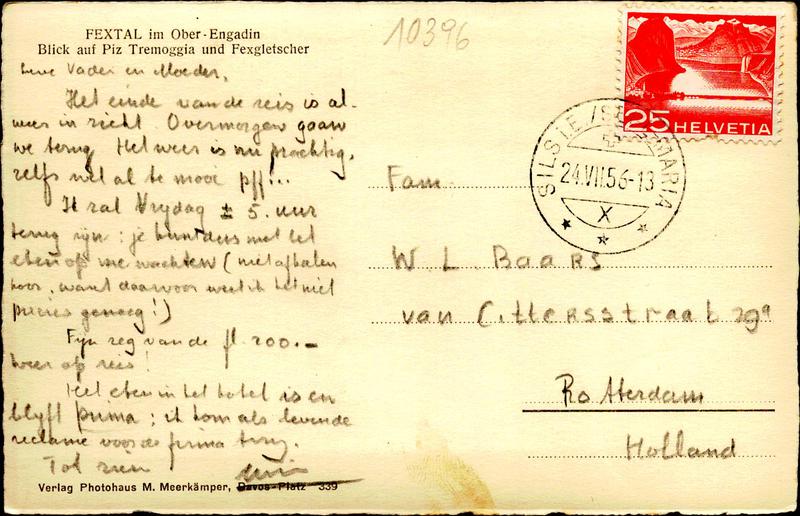 FEXTAL im Ober-Engadin
Blick auf Piz Tremoggia und Fexgletscher
10396
Lieve Vader en Moeder,
Het einde van de reis is al-
weer in zicht. Overmorgen gaan
we terug. Het weer is nu prachtig,
zelfs wel al te mooi pff...
Ik zal Vrydag ± 5. uur
terug zyn: je kunt dus met het
eten op me wachten (niet afhalen
hoor, want daarvoor weet ik het niet
precies genoeg!)
Fyn zeg van de fl. 200.-
weer op reis!
Het eten in het hotel is en
blyft prima; ik kom als levende
reclame voor de firma terug.
Tot ziens
Verlag Photohaus M. Meerkämper, Davos-Platz 339
25 HELVETIA
SILS I.E. / SEGL MARIA
24.VII.56-13
X
Fam.
W. L. Baars
van Cittersstraat 29a
Rotterdam
Holland